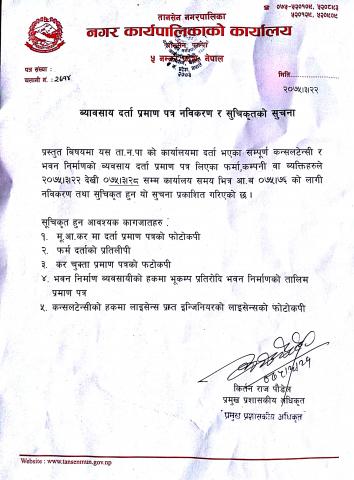 तानसेन नगरपालिका
नगर कार्यपालिकाको कार्यालय
तानसेन, पाल्पा
५ नम्बर प्रदेश, नेपाल
☎ ०७५-५२०१५९, ५२०८५३
पत्र संख्या :
चलानी नं. : २६१४
मिति:
२०७५।३।२२
व्यावसाय दर्ता प्रमाण पत्र नविकरण र सुचिकृतको सुचना
प्रस्तुत विषयमा यस ता.न.पा को कार्यालयमा दर्ता भएका सम्पूर्ण कन्सलटेन्सी र
भवन निर्माणको ब्यवसाय दर्ता प्रमाण पत्र लिएका फर्म,कम्पनी वा ब्यक्तिहरुले
२०७५।३।२२ देखी ०७५।३।२८ सम्म कार्यालय समय भित्र आ.ब ०७५।७६ को लागी
नविकरण तथा सुचिकृत हुन यो सुचना प्रकाशित गरिएको छ ।
सूचिकृत हुन आवश्यक कागजातहरु :
१. मू.अ.कर मा दर्ता प्रमाण पत्रको फोटोकपी
२. फर्म दर्ताको प्रतिलीपी
३. कर चुक्ता प्रमाण पत्रको फटोकपी
४. भवन निर्माण ब्यवसायीको हकमा भूकम्प प्रतिरोधि भवन निर्माणको तालिम
प्रमाण पत्र
५. कन्सलटेन्सीको हकमा लाइसेन्स प्राप्त इन्जिनियरको लाइसेन्सको फोटोकपी
किर्तन राज पौडेल
प्रमुख प्रशासकीय अधिकृत
प्रमुख प्रशासकीय अधिकृत
Website : www.tansenmun.gov.np